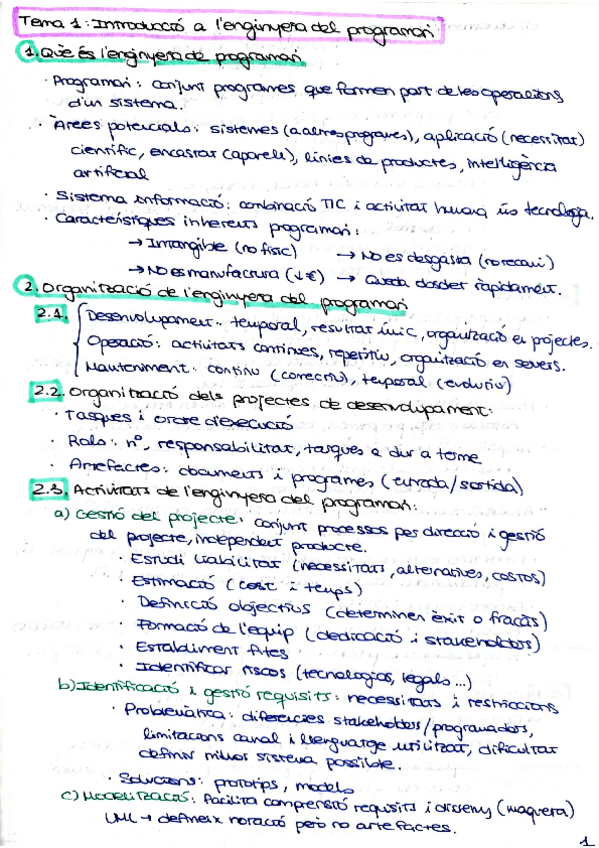 Tema 1: Introducció a l'enginyera del programari
1. Què és l'enginyera de programari
· Programari: conjunt programes que formen part de les operacions
d'un sistema.
· Àrees potencials: sistemes (a altres programes), aplicació (necessitat)
científic, encastat (aparell), línies de productes, intel·ligència
artificial
· Sistema informació: combinació TIC i activitat humana ús tecnologia.
· Característiques inherents programari:
→ Intangible (no físic) → No es desgasta (no recanvi)
→ No es manufactura (↓€) → Queda obsolet ràpidament.
2. Organització de l'enginyera del programari
2.1. Desenvolupament: temporal, resultat únic, organització en projectes.
Operació: activitats contínues, repetitiu, organització en serveis.
Manteniment: continu (correctiu), temporal (evolutiu)
2.2. Organització dels projectes de desenvolupament:
· Tasques i ordre d'execució
· Rols: nº, responsabilitat, tasques a dur a terme
· Artefactes: documents i programes (entrada/sortida)
2.3. Activitats de l'enginyera del programari:
a) Gestió del projecte: conjunt processos per direcció i gestió
del projecte, independent producte.
· Estudi viabilitat (necessitats, alternatives, costos)
· Estimació (cost i temps)
· Definició objectius (determinen èxit o fracàs)
· Formació de l'equip (dedicació i stakeholders)
· Establiment fites
· Identificar riscos (tecnologics, legals...)
b) Identificació i gestió requisits: necessitats i restriccions
· Problemàtica: diferències stakeholders/programadors,
limitacions canal i llenguatge utilitzat, dificultat
definir millor sistema possible.
· Solucions: prototips, models
c) Modelització: facilita comprensió requisits i disseny (maqueta)
UML → defineix notació però no artefactes.
1